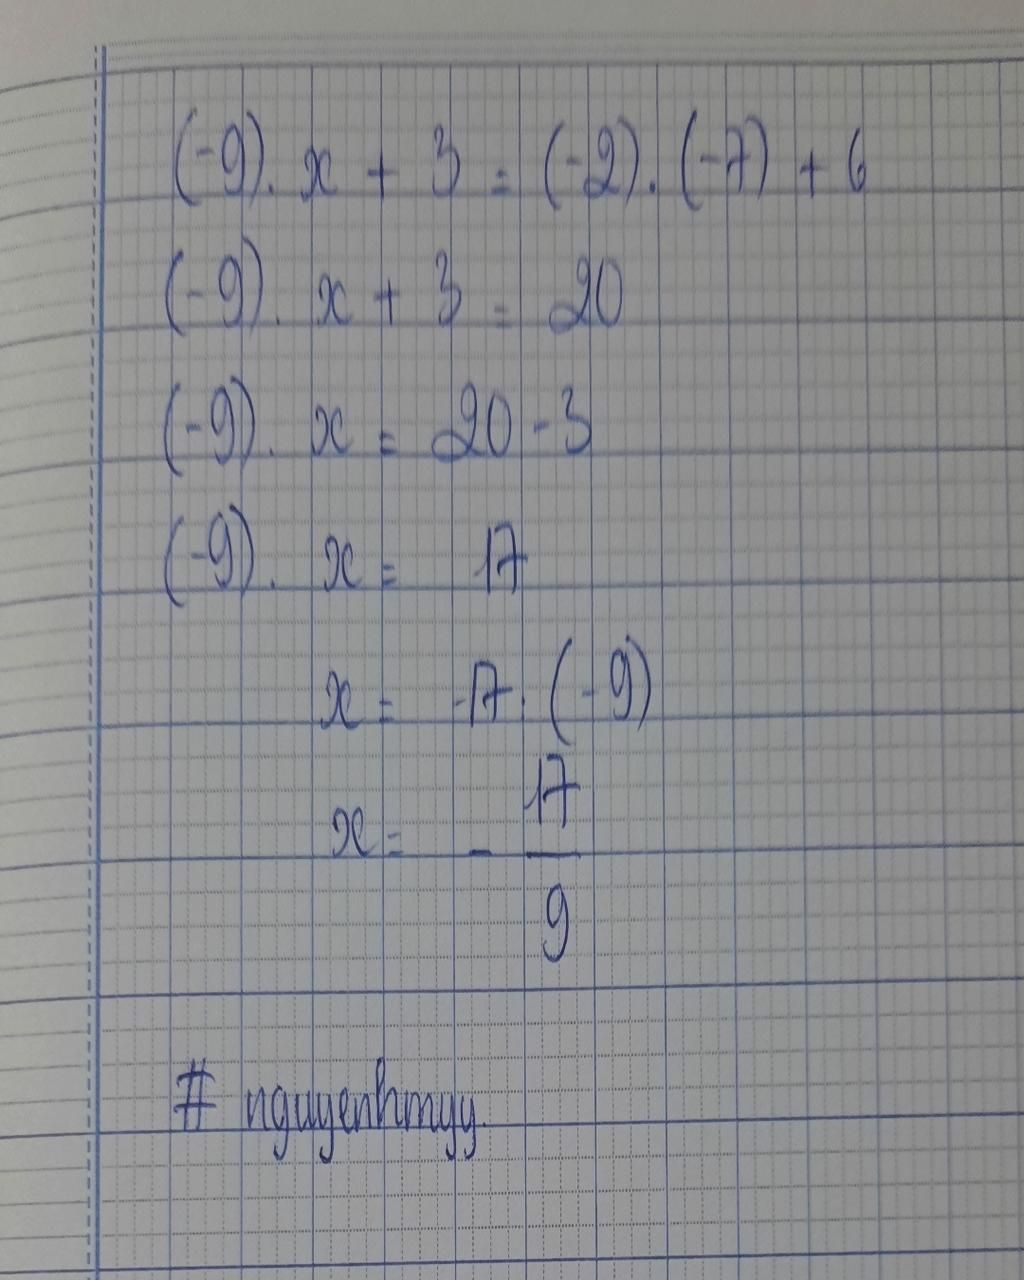 (-9). x + 3 = (-2). (-7) + 6
(-9). x + 3 = 20
(-9). x = 20 - 3
(-9). x = 17
x = -17 : (-9)
x = - 17/9
# nguyenhmyy.